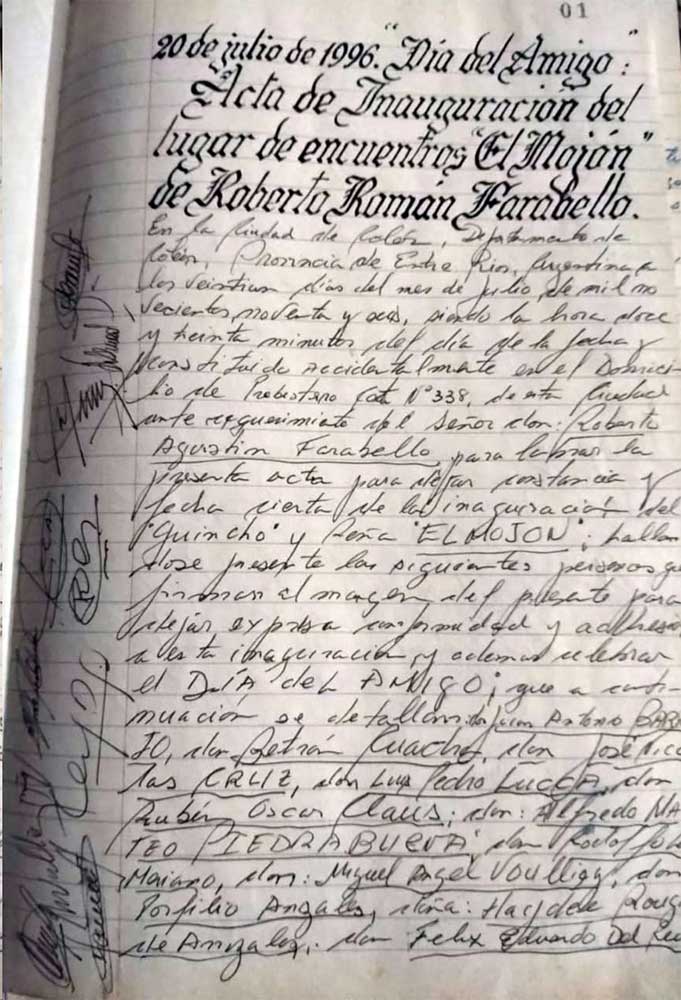 01
20 de julio de 1996. "Día del Amigo":
Acta de Inauguración del
lugar de encuentros "El Mojón"
de Roberto Román Farabello.
En la Ciudad de Colón, Departamento de
Colón, Provincia de Entre Ríos, Argentina, a
los veintiun días del mes de julio, de mil no
vecientos noventa y seis, siendo la hora doce
y treinta minutos del día de la fecha y
constituido accidentalmente en el Domici
lio de Nº 338, de esta Ciudad
ante requerimiento del señor don: Roberto
Agustin Farabello, para labrar la
presente acta para dejar constancia y
fecha cierta de la inauguración del
"Quincho" y Peña "EL MOJON"; hallan
dose presente las siguientes personas que
firman al margen del presente para
dejar expresa conformidad y adhesión
a esta inauguración y ademas celebrar
el DÍA del AMIGO; que a conti-
nuación se detallan: don Juan Antonio
JO, don Beltrán Cuadra, don José Nico
las CRUZ, don Luis Pedro LUCCA, don
Rubén Oscar Claus; don: Alfredo MA
TEO PIEDRABUENA, don Rodolfo
Maiano, don: Miguel Angel Voulliez, don
Porfilio Anzales, doña: Haydee
de Anzales, don Felix Eduardo Del